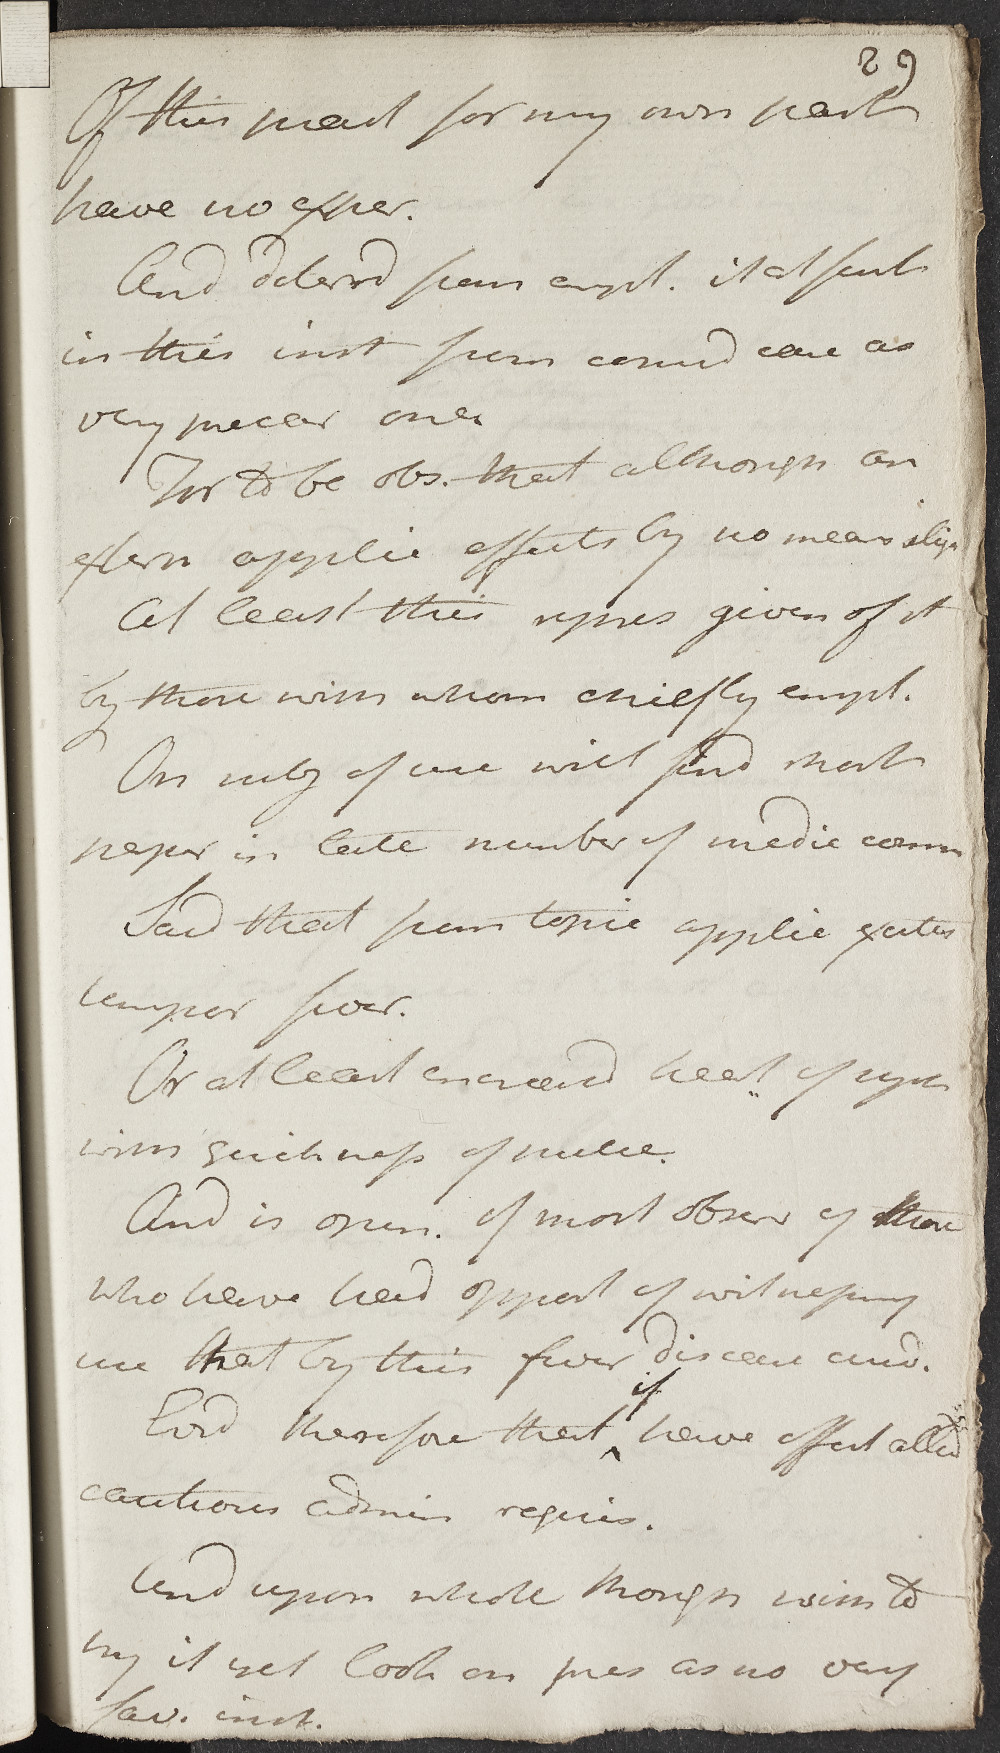 29
Of this pract for my own part
have no exper.
And deterrd from empl. it at pres
in this inst from consid case as
very precar one
For to be obs. that although an
extern applic effects by no means slight
At least this repres given of it
by those with whom chiefly empl.
On subj of use will find short
paper in late number of medic comm
Said that from topic applic excites
tempor fever.
Or at least encreased heat of syst
with quickness of pulse.
And is opin. of most observ of those
who have had opport of witnessing
use that by this fever disease cured.
Cord therefore that if have effect alled
cautious admin requis.
And upon whole though wish to
try it yet look on pres as no very
fav. inst.